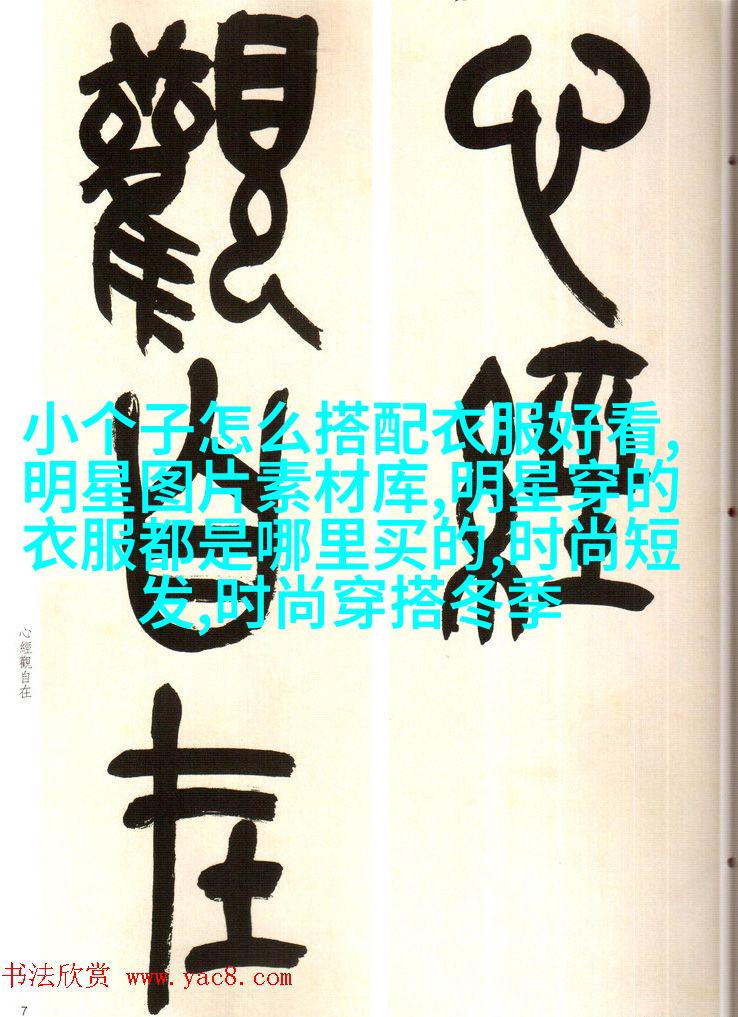 心經
觀自在
小个子怎么搭配衣服好看,
明星图片素材库,明星穿的
衣服都是哪里买的,时尚短
发,时尚穿搭冬季
心經觀自在
书法欣赏 www.yac8.com
7